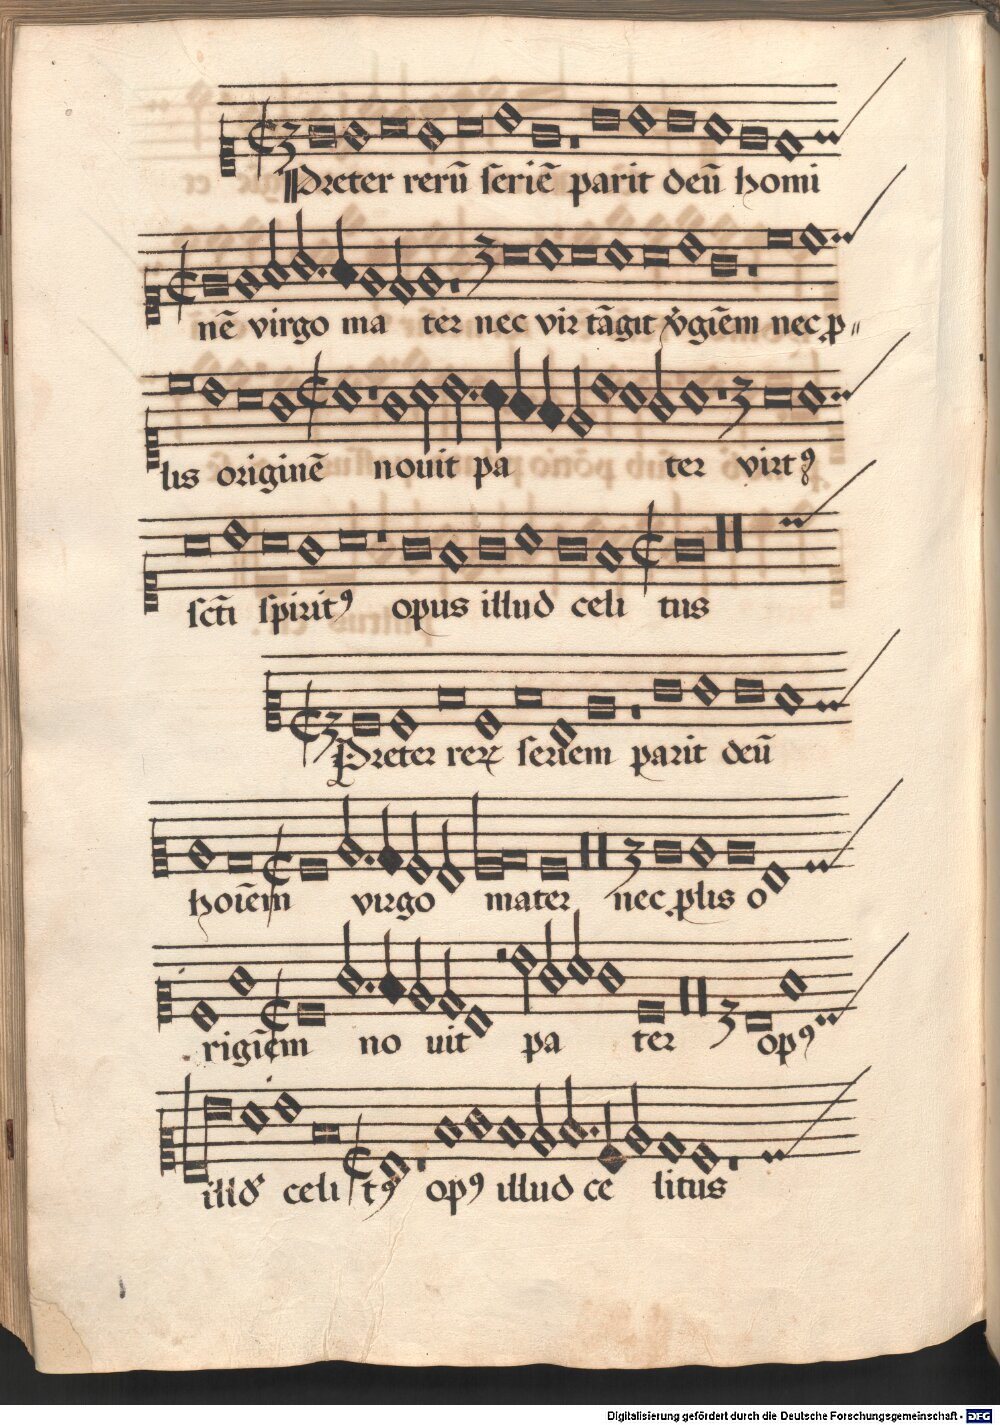 Preter rerū seriē parit deū homi
nē virgo ma ter nec vir tāgit v̊giēm nec ꝓ
lis originē novit pa ter virtꝰ
sct̄i spiritꝰ opus illud celi tus
Preter rerꝝ seriem parit deū
hoīem virgo mater nec ꝓlis o
rigīem no uit pa ter opꝰ
illud celi tꝰ opꝰ illud ce litus
Digitalisierung gefördert durch die Deutsche Forschungsgemeinschaft - DFG